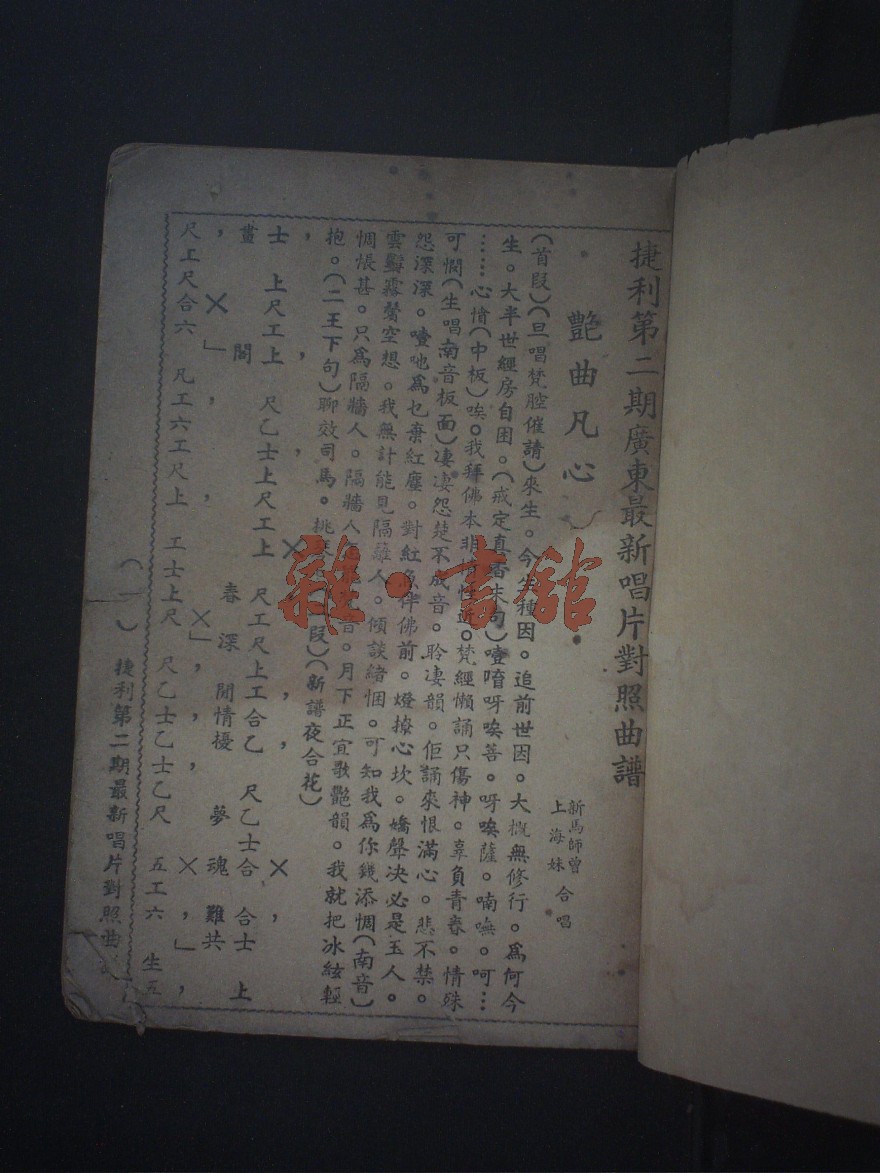 捷利第二期廣東最新唱片對照曲譜
艷曲凡心
新馬師曾
上海妹
合唱
（首段）（旦唱梵腔催請）來生。今生種因。追前世因。大概無修行。爲何今
生。大半世經房自困。（戒定真香末句）噎唷呀唉善。呀唉薩。喃嘸。呵…
……心憤（中板）唉。我拜佛本非 性近。梵經懶誦只傷神。辜負青春。情殊
可憫（生唱南音板面）凄凄怨楚不成音。聆凄韻。佢誦來恨滿心。悲不禁。
怨深深。噎吔爲乜棄紅塵。對紅魚伴佛前。燈撩心坎。嬌聲决必是玉人。
雲鬟霧鬢空想。我無計能見隔籬人。傾談緒悃。可知我爲你錢添惆（南音）
惆悵甚。只爲隔牆人。隔牆人 音。月下正宜歌艷韻。我就把冰絃輕
抱。（二王下句）聊效司馬。桃 段）（新譜夜合花）
， ， × ， ， × ，
士 上尺工上 尺乙士上尺工上 尺工尺上工合乙 尺乙士合 合士 上
畫 閣 春 深 閒情擾 夢 魂 難共
， ×」， ， ×」， ， ， × ，」，
尺工尺合六 凡工六工尺上 工士上尺 尺乙士乙士乙尺 五工六 生五
（一） 捷利第二期最新唱片對照曲
雜·書館